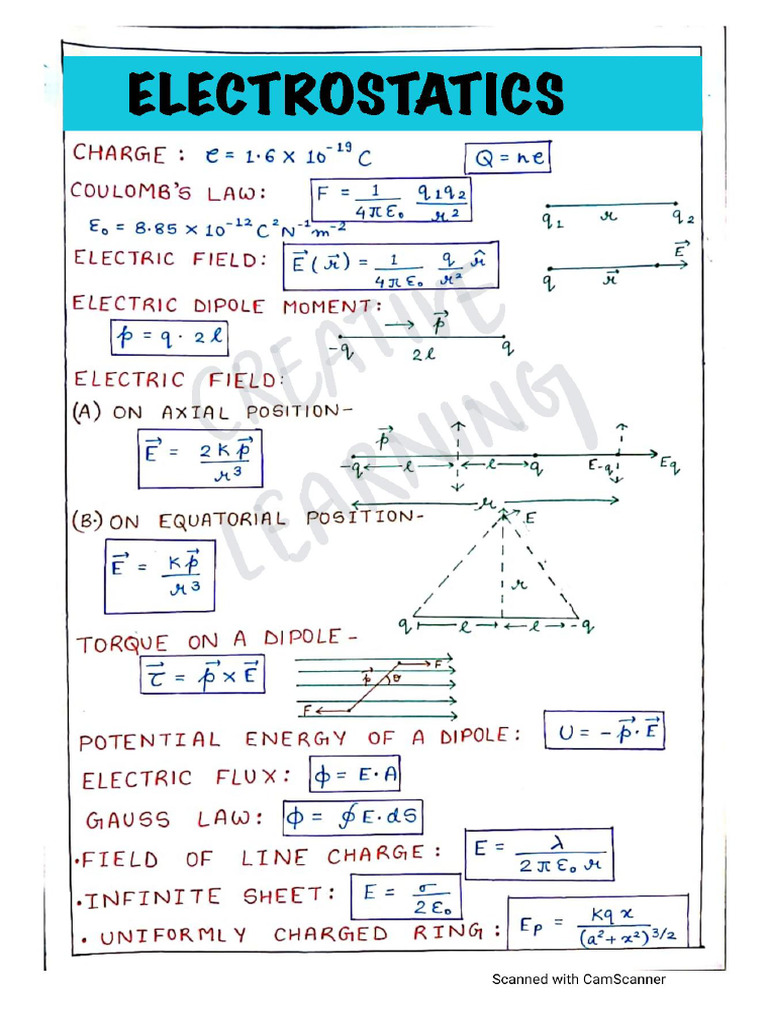 ELECTROSTATICS
CHARGE : e = 1.6 × 10⁻¹⁹ C Q = ne
COULOMB'S LAW: F = 1/4πε₀ q₁q₂/r²
q₁ r q₂
ε₀ = 8.85 × 10⁻¹² C²N⁻¹m⁻²
ELECTRIC FIELD: E⃗(r⃗) = 1/4πε₀ q/r² r̂
q r⃗ E⃗
ELECTRIC DIPOLE MOMENT:
p = q · 2l
p⃗
-q 2l q
ELECTRIC FIELD:
(A) ON AXIAL POSITION-
E⃗ = 2Kp⃗/r³
p⃗
-q l l q E-q Eq
r
(B.) ON EQUATORIAL POSITION-
E
E⃗ = Kp⃗/r³
r
q l l -q
TORQUE ON A DIPOLE -
τ⃗ = p⃗ × E⃗
p⃗ θ F
F
POTENTIAL ENERGY OF A DIPOLE: U = -p⃗·E⃗
ELECTRIC FLUX: ϕ = E·A
GAUSS LAW: ϕ = ∮E·dS
•FIELD OF LINE CHARGE: E = λ/2πε₀r
•INFINITE SHEET: E = σ/2ε₀
• UNIFORMLY CHARGED RING: Ep = Kqx/(a²+x²)³/²
CREATIVE
LEARNING
Scanned with CamScanner